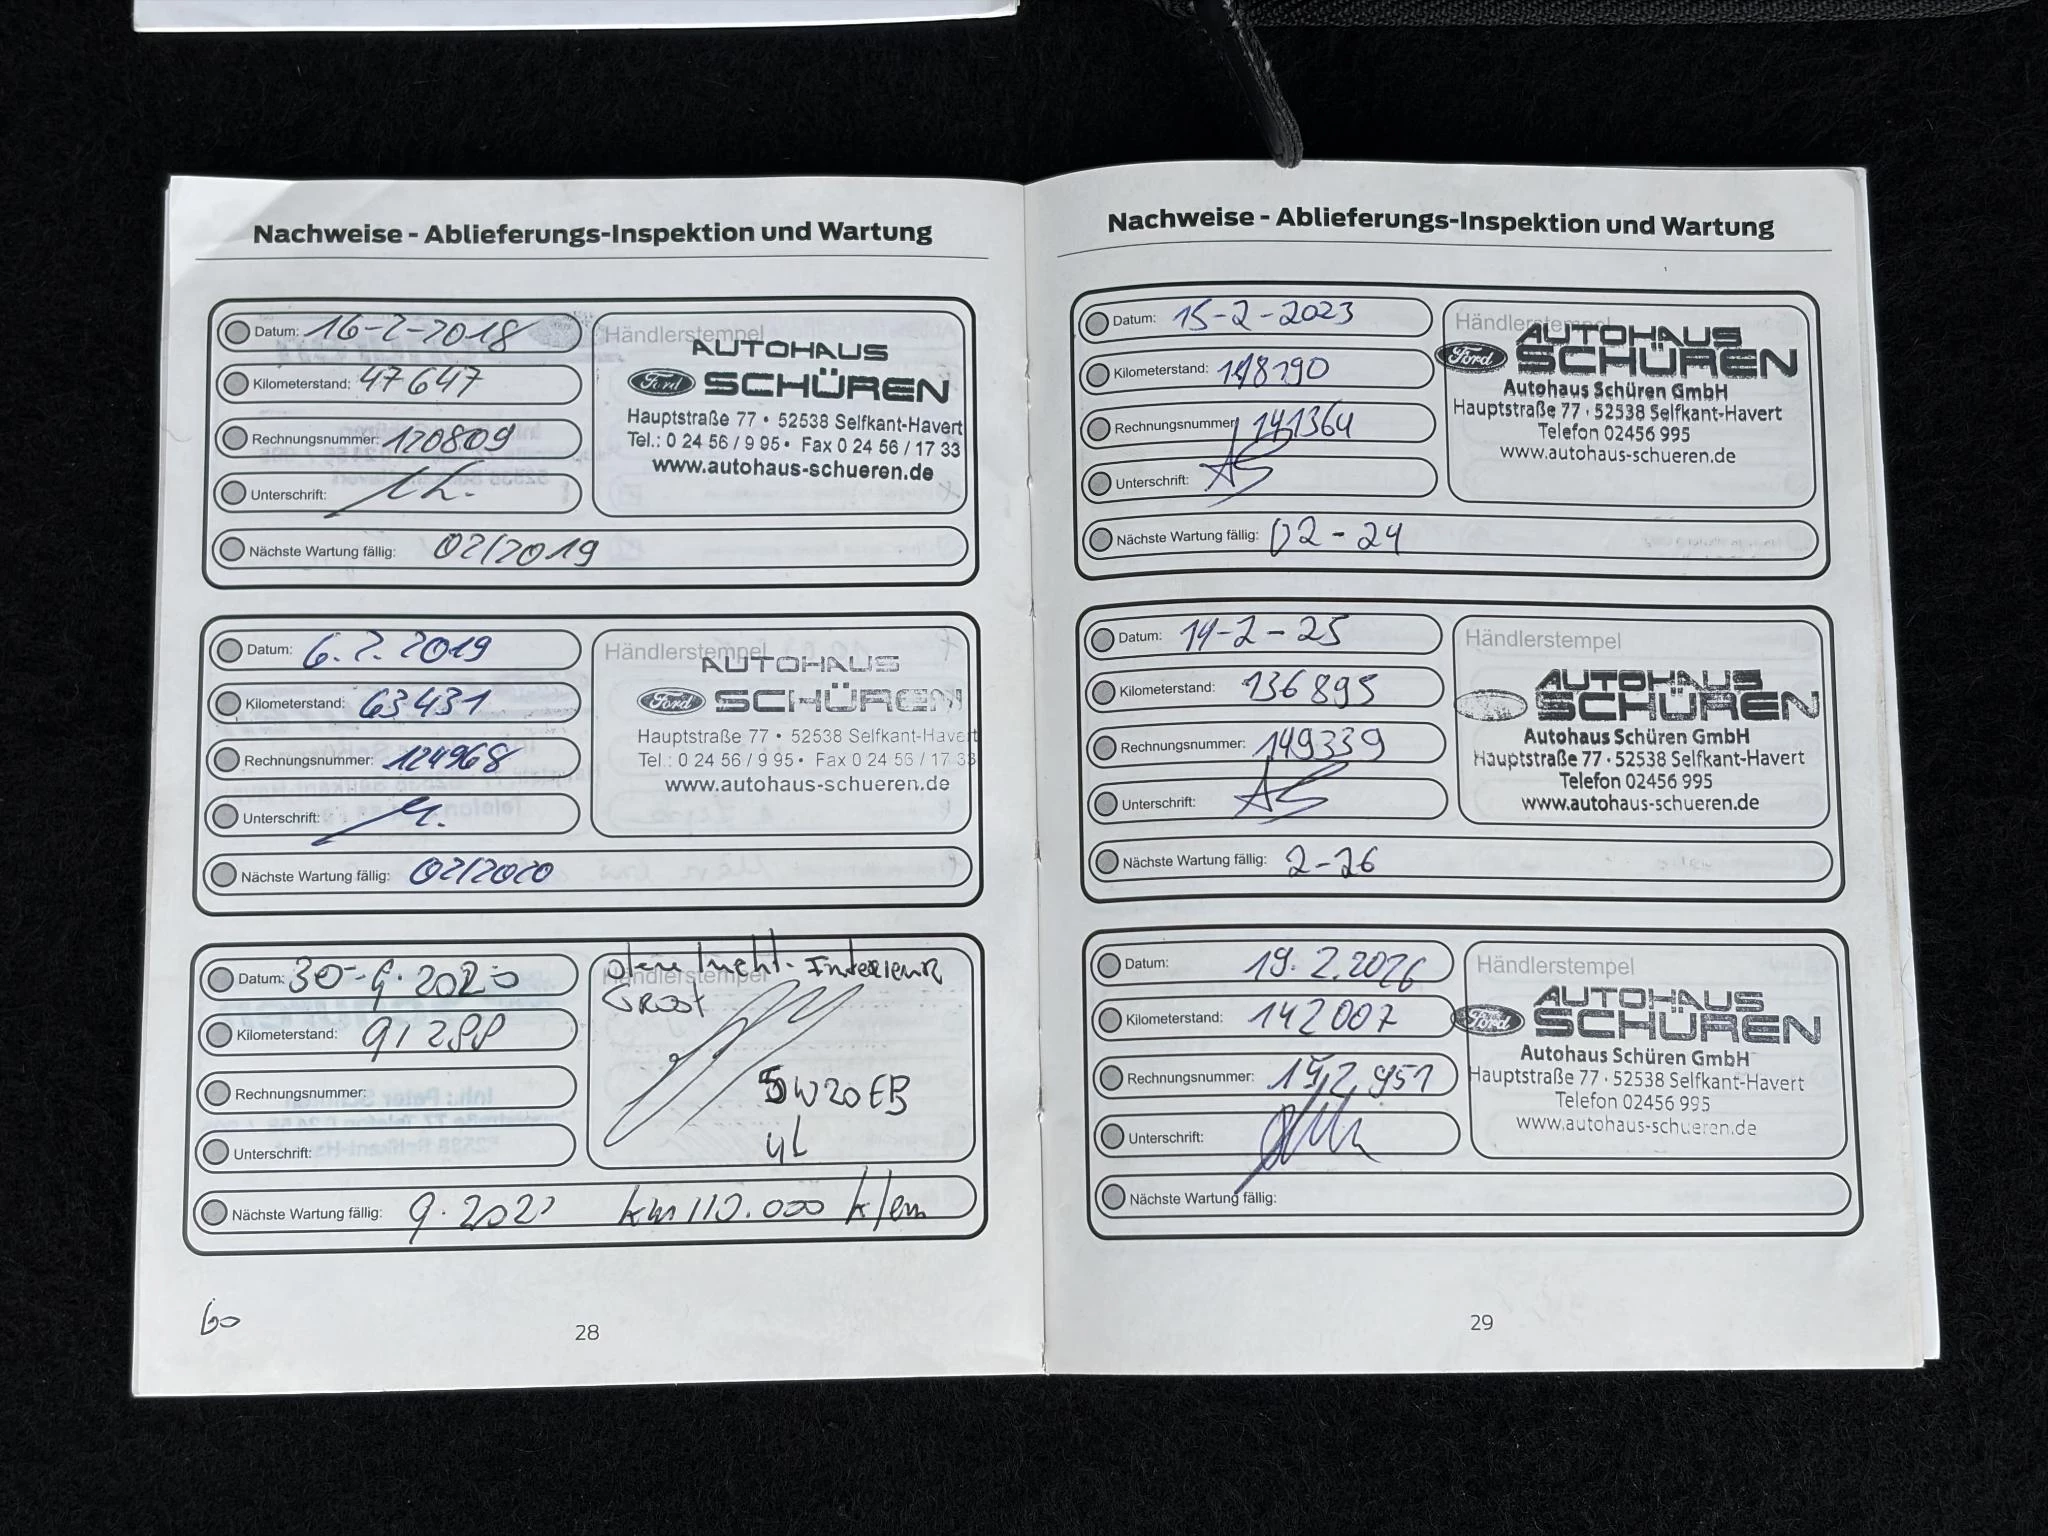 Nachweise - Ablieferungs-Inspektion und Wartung
Datum: 16-2-2018
Kilometerstand: 47647
Rechnungsnummer: 120809
Unterschrift:
Nächste Wartung fällig: 02/2019
Händlerstempel
AUTOHAUS
Ford SCHÜREN
Hauptstraße 77 • 52538 Selfkant-Havert
Tel.: 0 24 56 / 9 95 • Fax 0 24 56 / 17 33
www.autohaus-schueren.de
Datum: 6.2.2019
Kilometerstand: 63431
Rechnungsnummer: 124968
Unterschrift:
Nächste Wartung fällig: 02/2020
Händlerstempel
AUTOHAUS
Ford SCHÜREN
Hauptstraße 77 • 52538 Selfkant-Havert
Tel.: 0 24 56 / 9 95 • Fax 0 24 56 / 17 33
www.autohaus-schueren.de
Datum: 30-9.2020
Kilometerstand:
Rechnungsnummer:
Unterschrift:
Nächste Wartung fällig: km 110.000
Händlerstempel
5W20 EB
4L
60
28
Nachweise - Ablieferungs-Inspektion und Wartung
Datum: 15-2-2023
Kilometerstand:
Rechnungsnummer: 141364
Unterschrift: AS
Nächste Wartung fällig: 02-24
Händlerstempel
AUTOHAUS
Ford SCHÜREN
Autohaus Schüren GmbH
Hauptstraße 77 · 52538 Selfkant-Havert
Telefon 02456 995
www.autohaus-schueren.de
Datum: 14-2-25
Kilometerstand: 136895
Rechnungsnummer: 149339
Unterschrift: AS
Nächste Wartung fällig: 2-26
Händlerstempel
AUTOHAUS
SCHÜREN
Autohaus Schüren GmbH
Hauptstraße 77 · 52538 Selfkant-Havert
Telefon 02456 995
www.autohaus-schueren.de
Datum: 19.2.2026
Kilometerstand: 142007
Rechnungsnummer:
Unterschrift:
Nächste Wartung fällig:
Händlerstempel
AUTOHAUS
Ford SCHÜREN
Autohaus Schüren GmbH
Hauptstraße 77 · 52538 Selfkant-Havert
Telefon 02456 995
www.autohaus-schueren.de
29